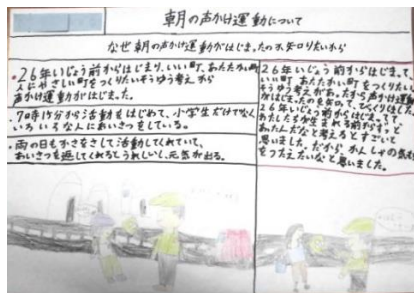 朝の声かけ運動について
なぜ朝の声かけ運動がはじまったのか知りたいから
・26年いじょう前からはじまり、いい町、あたたかい町
人にやさしい町をつくりたいそうゆう考えから
声かけ運動がはじまった。
・7時15分から活動をはじめて、小学生だけでなく
いろいろな人にあいさつをしている。
・雨の日もかさをさして活動してくれていて、
あいさつを返してくれるとうれしいし、元気が出る。
26年いじょう前からはじまって、
いい町、あたたかい町をつくりたい
そうゆう考えがあったから声かけ運動
がはじまったのを知って、びっくりした。
26年いじょう前からはじまってて、
わたしたちが生まれる前からずっと
あったんだなと考えるとすごいと
思いました。だから、かんしゃの気持ち
をつたえたいなと思いました。